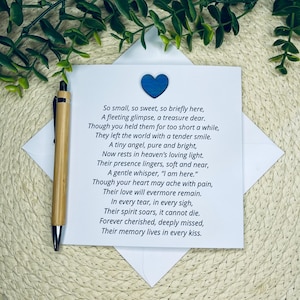 So small, so sweet, so briefly here,
A fleeting glimpse, a treasure dear.
Though you held them for too short a while,
They left the world with a tender smile.
A tiny angel, pure and bright,
Now rests in heaven's loving light.
Their presence lingers, soft and near,
A gentle whisper, "I am here."
Though your heart may ache with pain,
Their love will evermore remain.
In every tear, in every sigh,
Their spirit soars, it cannot die.
Forever cherished, deeply missed,
Their memory lives in every kiss.